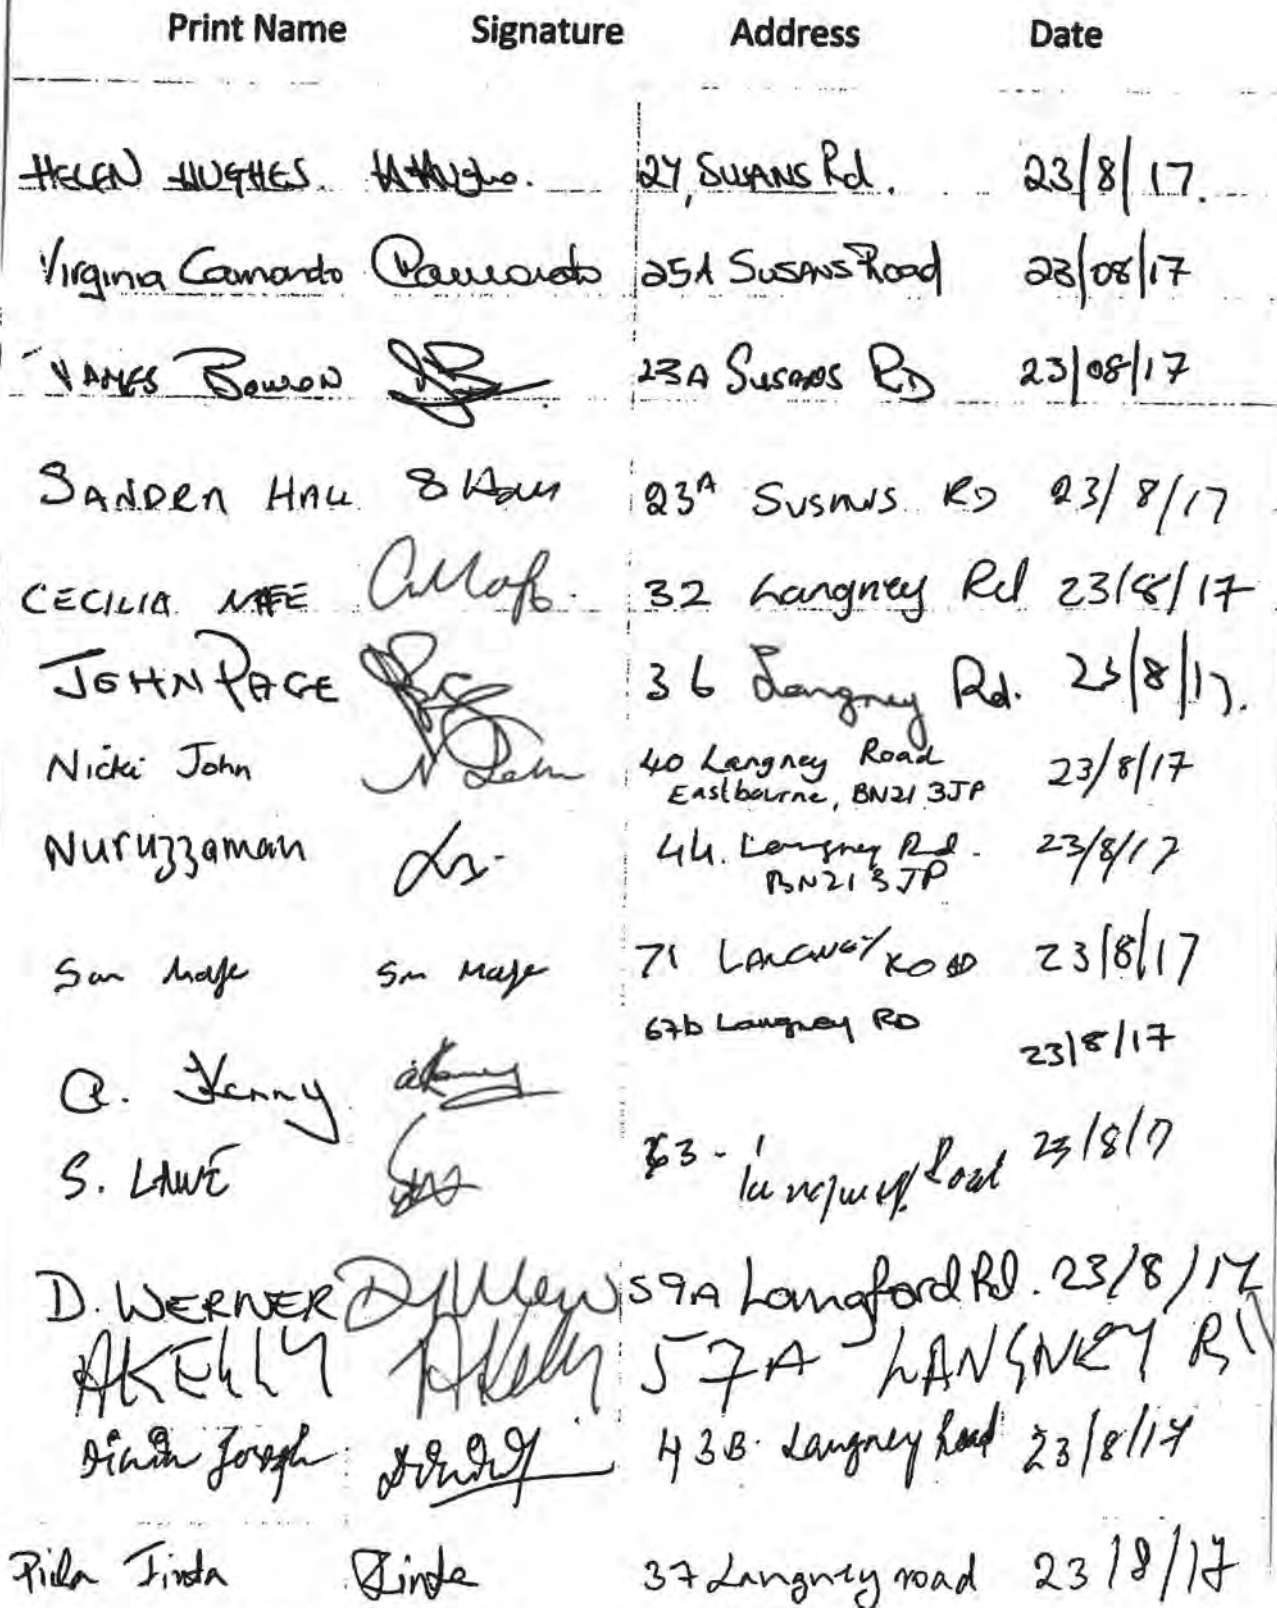 Print Name Signature Address Date
HELEN HUGHES HHughes. 27, SUSANS Rd. 23/8/17.
Virginia Camardo Camardo 25A SUSANS Road 23/08/17
JAMES Bowron 23A SUSANS RD 23/08/17
SANDRA HALL S Hall 23A SUSANS RD 23/8/17
CECILIA MAFE 32 Langney Rd 23/8/17
JOHN PAGE 36 Langney Rd. 23/8/17.
Nicki John N John 40 Langney Road 23/8/17
Eastbourne, BN21 3JP
Nuruzzaman 44. Langney Rd. 23/8/17
BN21 3JP
Sam Mafe Sm Mafe 71 LANGNEY ROAD 23/8/17
67b Langney RD 23/8/17
A. Kenny
S. LAWE 63 - Langney Road 23/8/17
D. WERNER 59A Langford Rd. 23/8/17
AKELLY AKelly 57A LANGNEY Rd
Joseph 43B. Langney Road 23/8/17
Jinda Jinda 37 Langney road 23/8/17